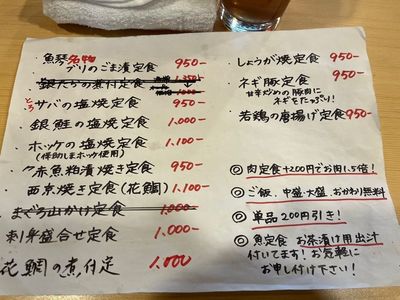 ・魚琴名物
ブリのごま漬定食 950-
・銀だらの煮付定食 1.350-
・とろサバの塩焼定食 950-
・銀鮭の塩焼定食 1.000-
・ホッケの塩焼定食 1.100-
(保助しまホッケ使用)
・赤魚粕漬焼き定食 950-
・西京焼き定食(花鯛) 1.100-
まぐろ山かけ定食 1.000-
刺身盛合せ定食 1.000-
花鯛の煮付定 1.000
・しょうが焼定食 950-
・ネギ豚定食 950-
甘辛炒めの豚肉に
ネギをたっぷり!
・若鶏の唐揚げ定食 950-
◎肉定食+200円でお肉1.5倍!
◎ご飯、中盛・大盛、おかわり無料
◎単品200円引き!
◎魚定食 お茶漬け用出汁
付いてます!お気軽に
お申し付け下さい!